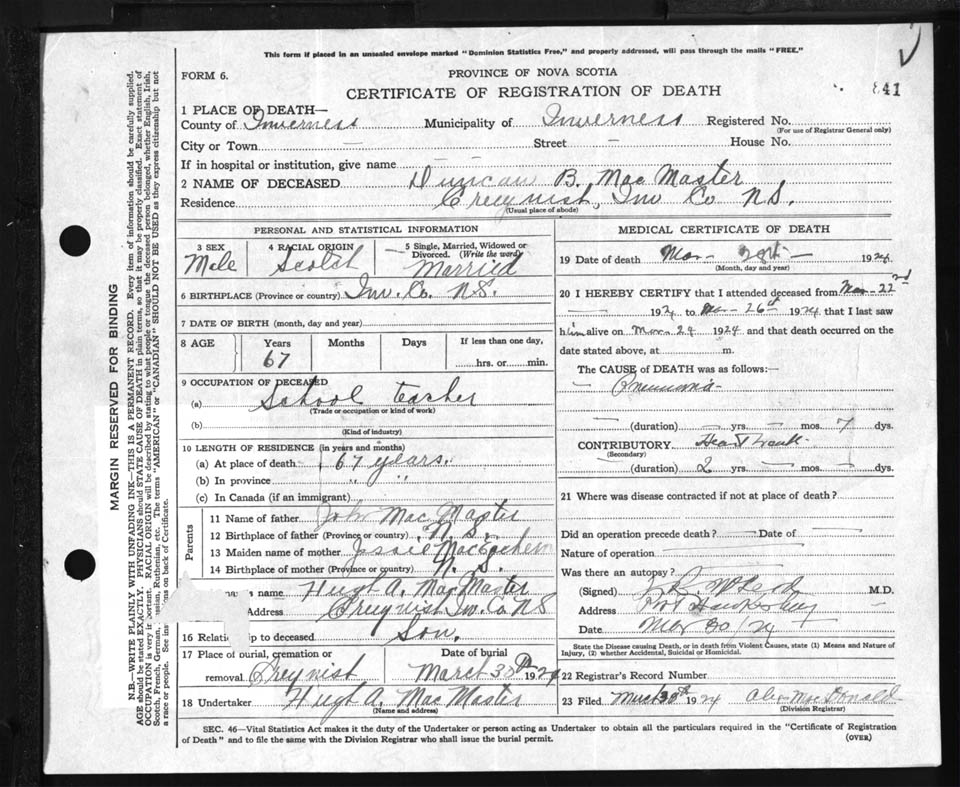 This form if placed in an unsealed envelope marked "Dominion Statistics Free," and properly addressed, will pass through the mails "FREE."
FORM 6.
PROVINCE OF NOVA SCOTIA
CERTIFICATE OF REGISTRATION OF DEATH
841
MARGIN RESERVED FOR BINDING
N.B.—WRITE PLAINLY WITH UNFADING INK—THIS IS A PERMANENT RECORD. Every item of information should be carefully supplied.
AGE should be stated EXACTLY. PHYSICIANS should STATE CAUSE OF DEATH in plain terms, so that it may be properly classified. Exact statement of
OCCUPATION is very important. RACIAL ORIGIN will be described by stating to what people or tongue the deceased person belonged, whether English, Irish,
Scotch, French, German, Russian, Ruthenian, etc. The terms "AMERICAN" or "CANADIAN" SHOULD NOT BE USED as they express citizenship but not
a race or people. See on back of Certificate.
1 PLACE OF DEATH—
County of Inverness Municipality of Inverness Registered No.
(For use of Registrar General only)
City or Town — Street — House No.
If in hospital or institution, give name — —
2 NAME OF DECEASED Duncan B. MacMaster
Residence Creignish, Inv Co N.S.
(Usual place of abode)
PERSONAL AND STATISTICAL INFORMATION
3 SEX 4 RACIAL ORIGIN 5 Single, Married, Widowed or
Divorced. (Write the word)
Male Scotch Married
6 BIRTHPLACE (Province or country) Inv. Co. N.S.
7 DATE OF BIRTH (month, day and year)
8 AGE Years Months Days If less than one day,
67 hrs. or min.
9 OCCUPATION OF DECEASED
(a) School teacher
(Trade or occupation or kind of work)
(b)
(Kind of industry)
10 LENGTH OF RESIDENCE (in years and months)
(a) At place of death 67 years.
(b) In province " "
(c) In Canada (if an immigrant)
Parents
11 Name of father John MacMaster
12 Birthplace of father (Province or country) N. S.
13 Maiden name of mother Jessie MacEachern
14 Birthplace of mother (Province or country) N. S.
name Hugh A. MacMaster
Address Creignish Inv. Co N S
16 Relationship to deceased Son.
17 Place of burial, cremation or Date of burial
removal Creignish March 30th 1924
18 Undertaker Hugh A. MacMaster
(Name and address)
MEDICAL CERTIFICATE OF DEATH
19 Date of death Mar— — 1924
(Month, day and year)
20 I HEREBY CERTIFY that I attended deceased from Mar—22nd
— 1924 to Mar—26th 1924 that I last saw
him alive on Mar—24 1924 and that death occurred on the
date stated above, at m.
The CAUSE of DEATH was as follows:—
— Pneumonia
— (duration) — yrs. — mos. 7 dys.
CONTRIBUTORY Heart weak
(Secondary)
(duration) 2 yrs. — mos. dys.
21 Where was disease contracted if not at place of death?
Did an operation precede death? — Date of —
Nature of operation —
Was there an autopsy?
(Signed) M.D.
Address Port Hawkesbury
Date Mar 30/24
State the Disease causing Death, or in death from Violent Causes, state (1) Means and Nature of
Injury, (2) whether Accidental, Suicidal or Homicidal.
22 Registrar's Record Number
23 Filed March 30th 1924 Alex MacDonald
(Division Registrar)
SEC. 46—Vital Statistics Act makes it the duty of the Undertaker or person acting as Undertaker to obtain all the particulars required in the "Certificate of Registration
of Death" and to file the same with the Division Registrar who shall issue the burial permit.
(OVER)